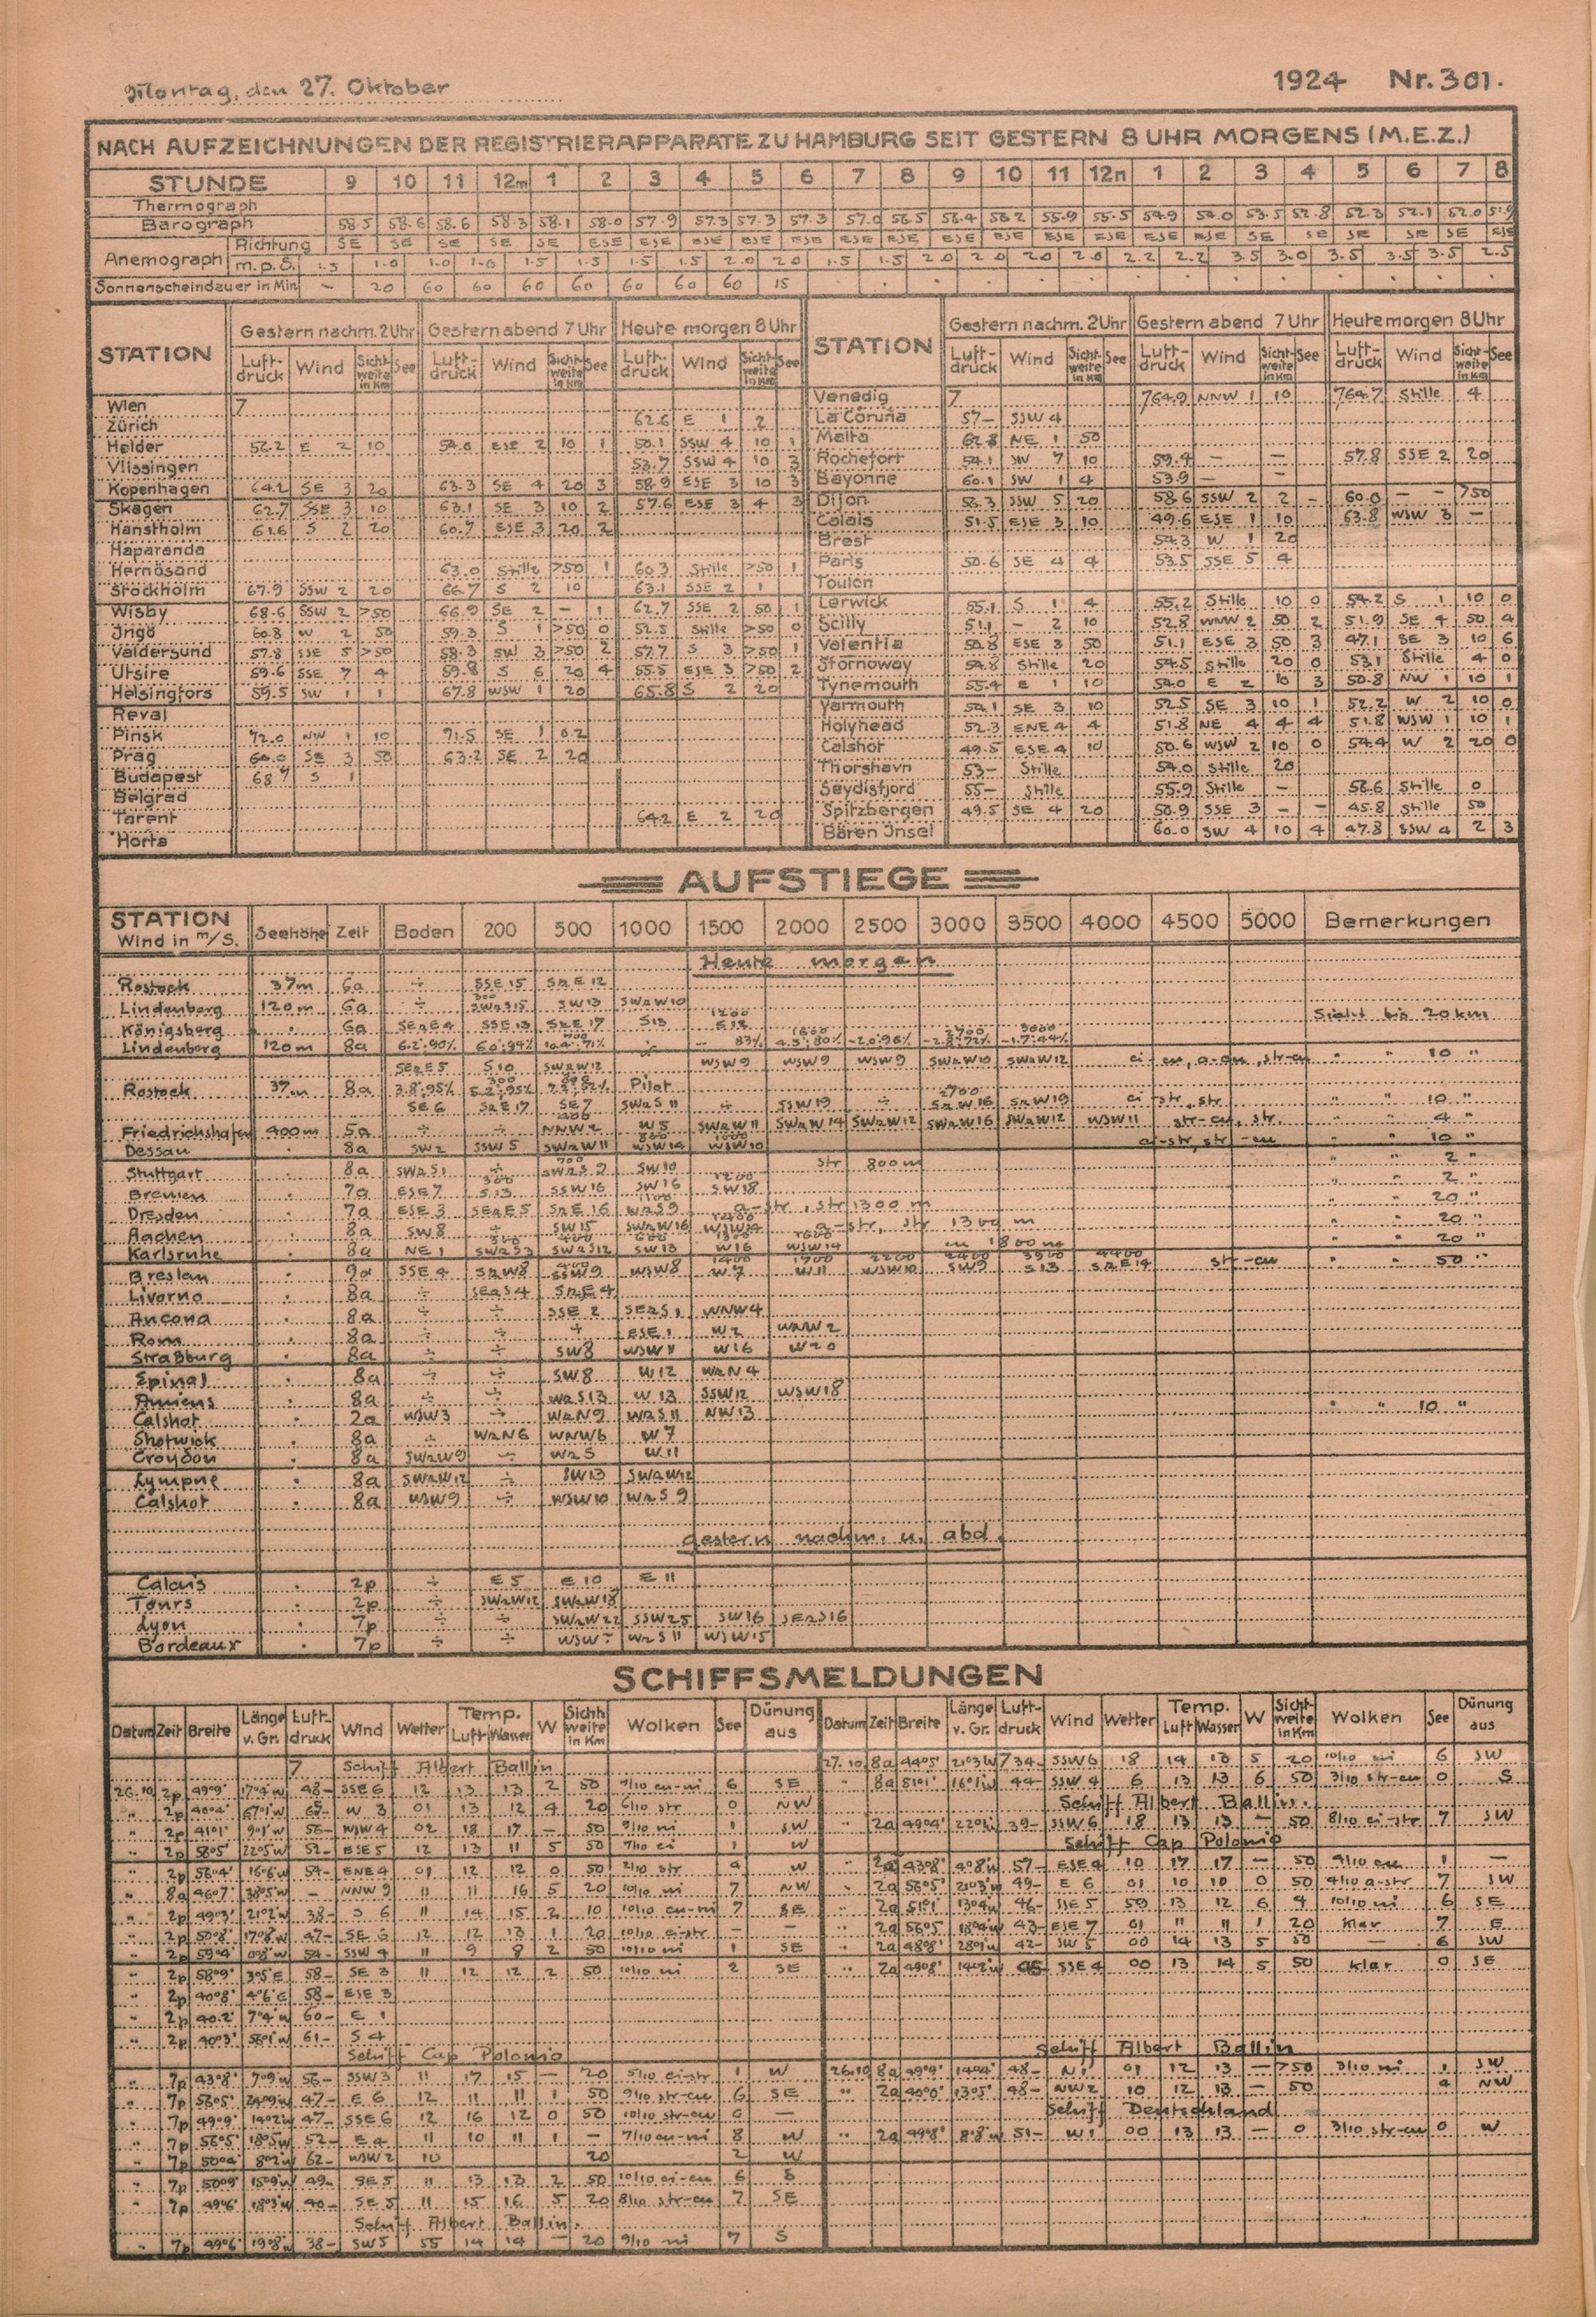 Montag, den 27. Oktober 1924 Nr. 301.
NACH AUFZEICHNUNGEN DER REGISTRIERAPPARATE ZU HAMBURG SEIT GESTERN 8 UHR MORGENS (M.E.Z.)
STUNDE 9 10 11 12m 1 2 3 4 5 6 7 8 9 10 11 12n 1 2 3 4 5 6 7 8
Thermograph
Barograph 58.5 58.6 58.6 58.3 58.1 58.0 57.9 57.3 57.3 57.3 57.0 56.5 56.4 56.2 55.9 55.5 54.9 54.0 53.5 52.8 52.3 52.1 52.0 51.9
Richtung SE SE SE SE SE ESE ESE ESE ESE ESE ESE ESE ESE ESE ESE ESE ESE ESE SE SE SE SE SE ESE
Anemograph m.p.S. 1.5 1.0 1.0 1.0 1.5 1.5 1.5 1.5 2.0 2.0 1.5 1.5 2.0 2.0 2.0 2.0 2.2 2.2 3.5 3.0 3.5 3.5 3.5 2.5
Sonnenscheindauer in Min – 20 60 60 60 60 60 60 60 15 . . . . . . . . . . . . . .
STATION Gestern nachm. 2 Uhr Gestern abend 7 Uhr Heute morgen 8 Uhr STATION Gestern nachm. 2 Uhr Gestern abend 7 Uhr Heute morgen 8 Uhr
Luftdruck Wind Sichtweite in Km See Luftdruck Wind Sichtweite in Km See Luftdruck Wind Sichtweite in Km See Luftdruck Wind Sichtweite in Km See Luftdruck Wind Sichtweite in Km See Luftdruck Wind Sichtweite in Km See
Wien 7 Venedig 7 764.9 NNW 1 10 764.7 Stille 4
Zürich 62.6 E 1 2 La Coruña 57– SSW 4
Helder 56.2 E 2 10 54.0 ESE 2 10 1 50.1 SSW 4 10 1 Malta 62.8 NE 1 50
Vlissingen 53.7 SSW 4 10 3 Rochefort 54.1 SW 7 10 59.4 – – 57.8 SSE 2 20
Kopenhagen 64.2 SE 3 20 63.3 SE 4 20 3 58.9 ESE 3 10 3 Bayonne 60.1 SW 1 4 53.9 – –
Skagen 62.7 SSE 3 10 63.1 SE 3 10 2 57.6 ESE 3 4 3 Dijon 58.3 SSW 5 20 58.6 SSW 2 2 – 60.0 – – 750
Hanstholm 61.6 S 2 20 60.7 ESE 3 20 2 Calais 51.5 ESE 3 10 49.6 ESE 1 10 63.8 WSW 3 –
Haparanda Brest 54.3 W 1 20
Hernösand 63.0 Stille >50 1 60.3 Stille >50 1 Paris 50.6 SE 4 4 53.5 SSE 5 4
Stockholm 67.9 SSW 2 20 66.7 S 2 10 63.1 SSE 2 1 Toulon
Wisby 68.6 SSW 2 >50 66.9 SE 2 – 1 62.7 SSE 2 50 1 Lerwick 55.1 S 1 4 55.2 Stille 10 0 54.2 S 1 10 0
Ingö 60.8 W 2 50 59.3 S 1 >50 0 52.5 Stille >50 0 Scilly 51.1 – 2 10 52.8 WNW 2 50 2 51.9 SE 4 50 4
Valdersund 57.8 SSE 5 >50 58.3 SW 3 >50 2 57.7 S 3 >50 1 Valentia 50.8 ESE 3 50 51.1 ESE 3 50 3 47.1 SE 3 10 6
Utsire 59.6 SSE 7 4 59.8 S 6 20 4 55.5 ESE 3 >50 2 Stornoway 54.8 Stille 20 54.5 Stille 20 0 53.1 Stille 4 0
Helsingfors 59.5 SW 1 1 67.8 WSW 1 20 65.8 S 2 20 Tynemouth 55.4 E 1 10 54.0 E 2 10 3 50.8 NW 1 10 1
Reval Yarmouth 54.1 SE 3 10 52.5 SE 3 10 1 52.2 W 2 10 0
Pinsk 72.0 NW 1 10 71.5 SE 1 0.2 Holyhead 52.3 ENE 4 4 51.8 NE 4 4 4 51.8 WSW 1 10 1
Prag 60.0 SE 3 50 63.2 SE 2 20 Calshot 49.5 ESE 4 10 50.6 WSW 2 10 0 54.4 W 2 20 0
Budapest 68.7 S 1 Thorshavn 53– Stille 54.0 Stille 20
Belgrad Seydisfjord 55– Stille 55.9 Stille – 56.6 Stille 0
Tarent 64.2 E 2 20 Spitzbergen 49.5 SE 4 20 50.9 SSE 3 – – 45.8 Stille 50
Horta Bären Insel 60.0 SW 4 10 4 47.8 SSW 4 2 3
AUFSTIEGE
STATION Wind in m/S. Seehöhe Zeit Boden 200 500 1000 1500 2000 2500 3000 3500 4000 4500 5000 Bemerkungen
Heute morgen
Rostock 37m 6a ÷ SSE 15 SzE 12
Lindenberg 120m 6a ÷ SWzS 15 SW 13 SWzW 10
Königsberg . 6a SEzE 4 SSE 13 SzE 17 S 13 Sicht bis 20 km
Lindenberg 120m 8a 6.2 90% 6.0 94% 71% 83% 80% 96% 72% 44%
SEzE 5 S 10 SWzW 12 WSW 9 WSW 9 WSW 9 SWzW 10 SWzW 12 " " 10 "
Rostock 37m 8a 3.8 95% 95% Pilot
SE 6 SzE 17 SE 7 SWzS 11 ÷ SSW 19 ÷ SzW 16 SzW 19 ci-str, str. " " 10 "
Friedrichshafen 400m 5a ÷ ÷ NNW 2 W 5 SWzW 11 SWzW 14 SWzW 12 SWzW 16 SWzW 12 WSW 11 str-cu, str. " " 4 "
Dessau . 8a SW 2 SSW 5 SWzW 11 WSW 14 WSW 10 " " 10 "
Stuttgart . 8a SWzS 1 ÷ SWzS 9 SW 10 str 800 m " " 2 "
Bremen . 7a ESE 7 S 13 SSW 16 SW 16 SW 18 " " 2 "
Dresden . 7a ESE 3 SEzE 5 SzE 16 WzS 9 a-str, str 1300 m " " 20 "
Aachen . 8a SW 8 ÷ SW 15 SWzW 16 a-str, str 1300 m " " 20 "
Karlsruhe . 8a NE 1 SWzS 3 SWzS 12 SW 13 W 16 WSW 14 cu 1800 m " " 20 "
Breslau . 9a SSE 4 SzW 8 SSW 9 WSW 8 W 7 W 11 WSW 10 SW 9 S 13 SzE 14 str-cu " " 50 "
Livorno . 8a ÷ SEzS 4 SzE 4
Ancona . 8a ÷ ÷ SSE 2 SEzS 1 WNW 4
Rom . 8a ÷ ÷ ÷ ESE 1 W 2 WNW 2
Straßburg . 8a ÷ ÷ SW 8 WSW W 16 W 20
Epinal . 8a ÷ ÷ SW 8 W 12 WzN 4
Amiens . 8a ÷ ÷ WzS 13 W 13 SSW 12 WSW 18
Calshot . 2a WSW 3 ÷ WzN 9 WzS 11 NW 13 " " 10 "
Shotwick . 8a ÷ WzN 6 WNW 6 W 7
Croydon . 8a SWzW 9 ÷ WzS W 11
Lympne . 8a SWzW 12 ÷ SW 13 SWzW 12
Calshot . 8a WSW 9 ÷ WSW 10 WzS 9
gestern nachm. u. abd.
Calais . 2p ÷ E 5 E 10 E 11
Tours . 2p ÷ SWzW 12 SWzW 18
Lyon . 7p ÷ ÷ SWzW 22 SSW 25 SW 16 SEzS 16
Bordeaux . 7p ÷ ÷ WSW WzS 11 WSW 15
SCHIFFSMELDUNGEN
Datum Zeit Breite Länge v. Gr. Luftdruck Wind Wetter Temp. Luft Wasser W Sichtweite in Km Wolken See Dünung aus Datum Zeit Breite Länge v. Gr. Luftdruck Wind Wetter Temp. Luft Wasser W Sichtweite in Km Wolken See Dünung aus
7 Schiff Albert Ballin 27.10 8a 44°5' 21°3'W 734– SSW 6 18 14 13 5 20 10/10 ni 6 SW
26.10 2p 49°9' 17°4'W 48– SSE 6 12 13 13 2 50 9/10 cu-ni 6 SE " 8a 51°1' 16°1'W 44– SSW 4 6 13 13 6 50 3/10 str-cu 0 S
" 2p 40°4' 67°1'W 65– W 3 01 13 12 4 20 6/10 str 0 NW Schiff Albert Ballin.
" 2p 41°1' 9°1'W 56– WSW 4 02 18 17 – 50 9/10 ni 1 SW " 2a 49°4' 39– SSW 6 18 13 13 – 50 8/10 ci-str 7 SW
" 2p 58°5' 22°5'W 52– ESE 5 12 13 11 5 50 7/10 ci 1 W Schiff Cap Polonio
" 2p 56°4' 16°6'W 54– ENE 4 01 12 12 0 50 2/10 str 4 W " 2a 43°8' 4°8'W 57– ESE 4 10 17 17 – 50 4/10 cu 1 –
" 8a 46°7' 38°5'W – NNW 9 11 11 16 5 20 10/10 ni 7 NW " 2a 56°5' 21°3'W 49– E 6 01 10 10 0 50 4/10 a-str 7 SW
" 2p 49°3' 21°2'W 38– S 6 11 14 15 2 10 10/10 cu-ni 7 SE " 2a 51°1' 13°4'W 46– SSE 5 59 13 12 6 4 10/10 ni 6 SE
" 2p 50°8' 17°8'W 47– SE 6 12 12 13 1 20 10/10 ci-str – – " 2a 56°5' 18°4'W 43– ESE 7 01 11 11 1 20 klar 7 E
" 2p 59°4' 0°8'W 54– SSW 4 11 9 8 2 50 10/10 ni 1 SE " 2a 48°8' 28°1'W 42– SW 5 00 14 13 5 50 – 6 SW
" 2p 58°9' 3°5'E 58– SE 3 11 12 12 2 50 10/10 ni 2 SE " 2a 49°8' 14°2'W 45– SSE 4 00 13 14 5 50 klar 0 SE
" 2p 40°8' 4°6'E 58– ESE 3
" 2p 40.2' 7°4'W 60– E 1
" 2p 40°3' 58°1'W 61– S 4
Schiff Cap Polonio Schiff Albert Ballin
" 7p 43°8' 7°9'W 56– SSW 3 11 17 15 – 20 5/10 ci-str 1 W 26.10 8a 49°9' 14°4' 48– N 1 01 12 13 – >50 3/10 ni 1 SW
" 7p 56°5' 24°9'W 47– E 6 12 11 11 1 50 9/10 str-cu 6 SE " 2a 40°0' 13°5' 48– NW 2 10 12 13 – 50 4 NW
" 7p 49°9' 14°2'W 47– SSE 6 12 16 12 0 50 10/10 str-cu 6 – Schiff Deutschland
" 7p 56°5' 18°5'W 52– E 4 11 10 11 1 – 7/10 cu-ni 8 W " 2a 49°8' 8°8'W 51– W 1 00 13 13 – 0 3/10 str-cu 0 W
" 7p 50°4' 8°2'W 62– WSW 2 10 20 2 W
" 7p 50°9' 15°9'W 49– SE 5 11 13 13 2 50 10/10 ci-cu 6 S
" 7p 49°6' 18°3'W 40– SE 5 11 15 16 5 20 8/10 str-cu 7 SE
Schiff Albert Ballin.
" 7p 49°6' 19°8'W 38– SW 5 55 14 14 – 20 9/10 ni 7 S